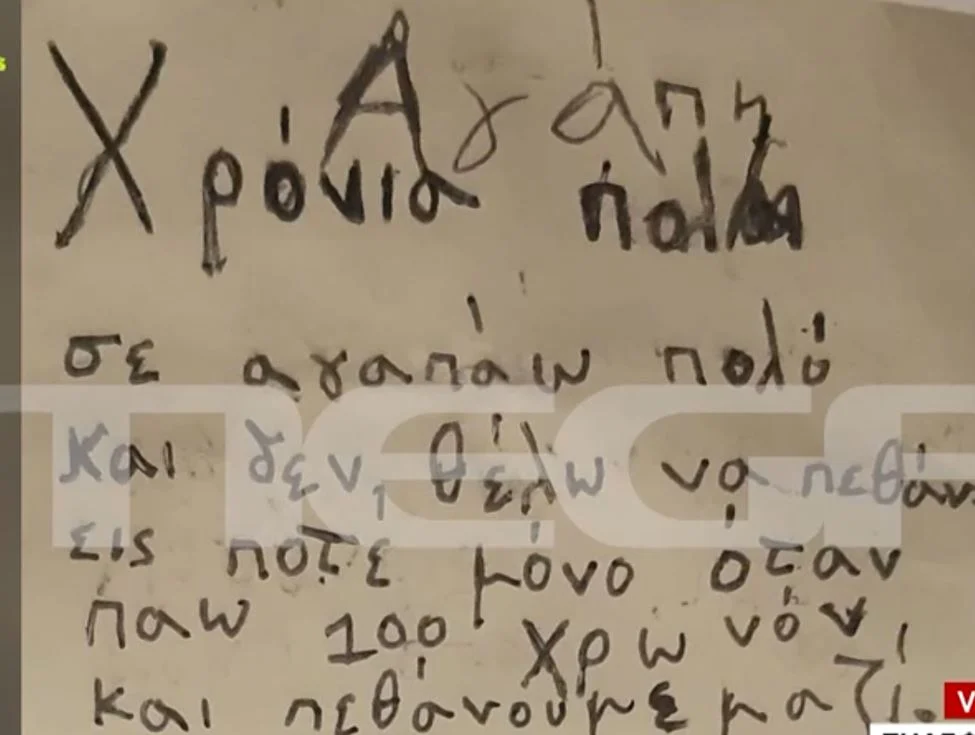 Αγάπη
Χρόνια πολλά
σε αγαπάω πολύ
και δεν θέλω να πεθάν
εις ποτέ μόνο όταν
παω 100 χρω νόν,
και πεθάνουμε μαζί.
MEGA